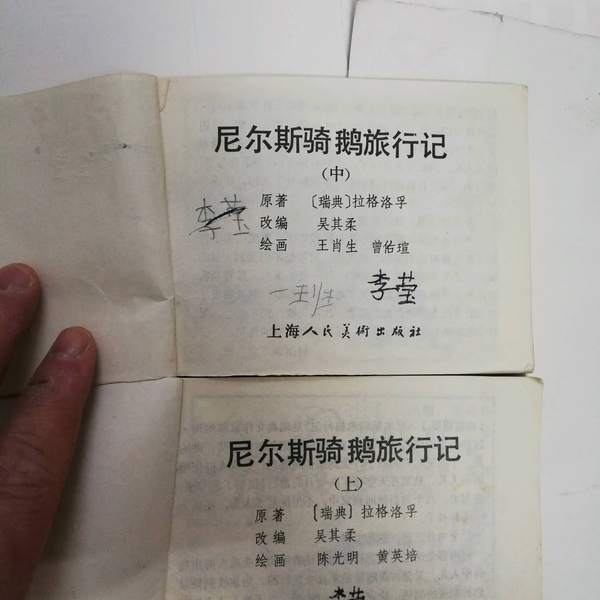 尼尔斯骑鹅旅行记
(中)
原著 〔瑞典〕拉格洛孚
改编 吴其柔
绘画 王肖生 曾佑瑄
李莹
一班 李莹
上海人民美術出版社
尼尔斯骑鹅旅行记
(上)
原著 〔瑞典〕拉格洛孚
改编 吴其柔
绘画 陈光明 黄英培